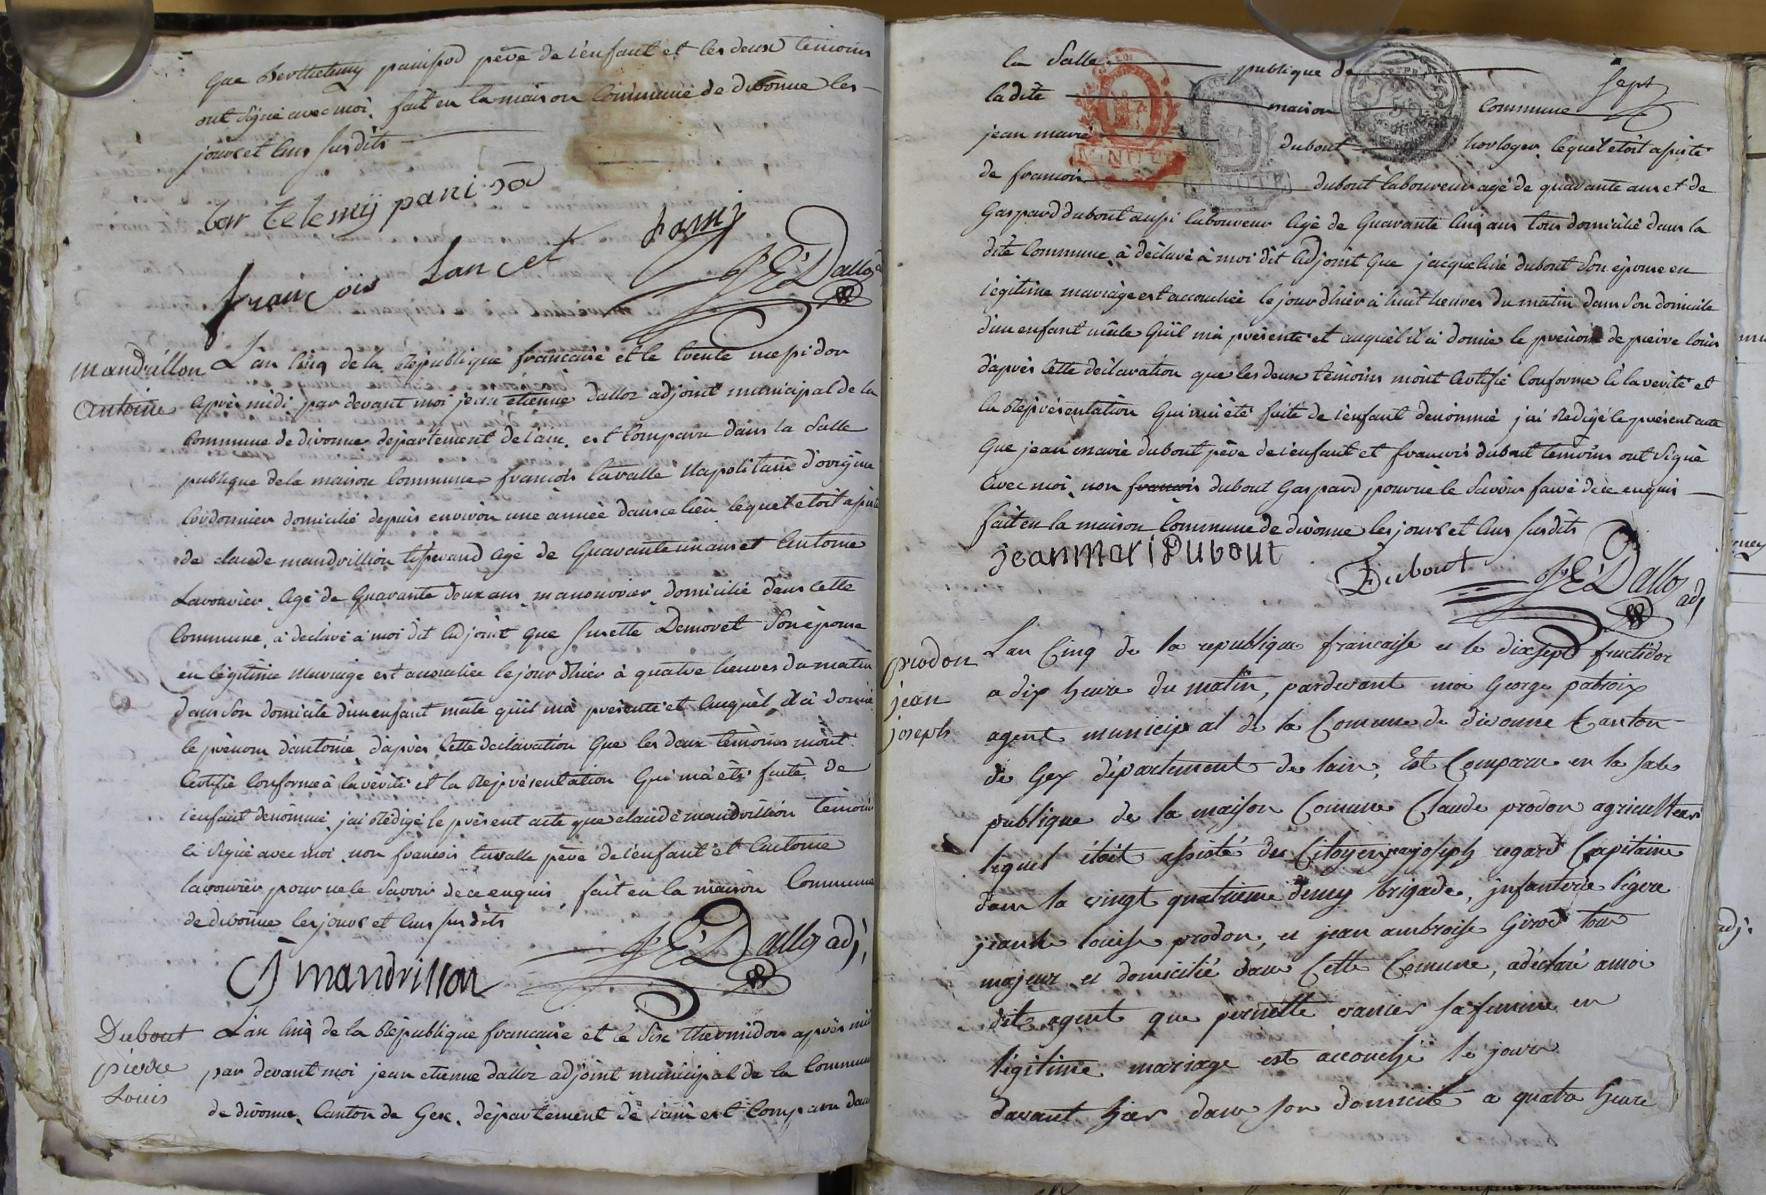 que Berthelemy panisod père de l'enfant et les deux temoins
ont signé avec moi. fait en la maison commune de divonne les
jours et ans susdits
bartelemy panisod
françois Lancet
J. E. Dalloz
mandrillon
antoine
L'an cinq de la République francaise et le trente messidor
après midi par devant moi jean etienne dalloz adjoint municipal de la
commune de divonne departement de l'ain, est comparu dans la Salle
publique de la maison commune francois lavalle Napolitain d'origine
cordonnier domicilié depuis environ une année dans ce lieu lequel etoit assisté
de claude mandrillion tisserand agé de quarante un ans et antoine
Lavouvier agé de quarante deux ans manouvrier domicilié dans cette
commune, à déclaré à moi dit adjoint que susette Demoret Son épouse
en légitime mariage est accouchée le jour d'hier à quatre heures du matin
dans son domicile d'un enfant mâle qu'il m'a présenté et auquel il a donné
le prénom d'antoine d'après cette déclaration que les deux temoins m'ont
certifié conforme à la vérité et la Représentation qui m'a été faite de
l'enfant dénommé j'ai rédigé le présent acte que claude mandrillion temoin
a signé avec moi non francois lavalle père de l'enfant et antoine
lavouvier pour ne le savoir de ce enquis, fait en la maison commune
de divonne les jours et ans susdits
J. E. Dalloz adj.
C mandrillon
Dubout
pierre
Louis
L'an cinq de la République francaise et le Six thermidor après midi
par devant moi jean etienne dalloz adjoint municipal de la commune
de divonne, Canton de Gex, département de l'ain est comparu dans
la Salle publique de
ladite maison commune sept
jean marie dubout horloger lequel étoit assisté
de francois dubout laboureur agé de quarante ans et de
Gaspard dubout aussi laboureur agé de quarante cinq ans tous domicilié dans la
dite commune à déclaré à moi dit adjoint que jacqueline dubout Son épouse en
légitime mariage est accouchée le jour d'hier à huit heures du matin dans son domicile
d'un enfant mâle qu'il m'a présenté et auquel il a donné le prénom de pierre louis
d'après cette déclaration que les deux temoins m'ont certifié conforme à la vérité et
la Représentation qui m'a été faite de l'enfant dénommé j'ai rédigé le présent acte
que jean marie dubout père de l'enfant et francois dubout temoins ont signé
avec moi non francois dubout Gaspard pour ne le savoir faire de ce enquis
fait en la maison commune de divonne les jours et ans susdits
jean mari Dubout
Dubout
J. E. Dalloz adj
prodon
jean
joseph
L'an Cinq de la republique francaise et le dixsept fructidor
a dix heure du matin, pardevant moi George patroix
agent municipal de la Comune de divonne Canton
de Gex département de lain, Est Comparu en la sale
publique de la maison Comune Claude prodon agriculteur
lequel étoit assisté du Citoyen joseph regard Capitaine
dans la vingt quatrieme demy brigade, jnfanterie ligere
jeanne louise prodon, et jean ambroise Girod tous
majeur et domicilié dans Cette Comune, a déclaré a moi
dit agent que pernette vancier sa femme en
légitime mariage est accouchée le jour
davant hier dans son domicile a quatre heure